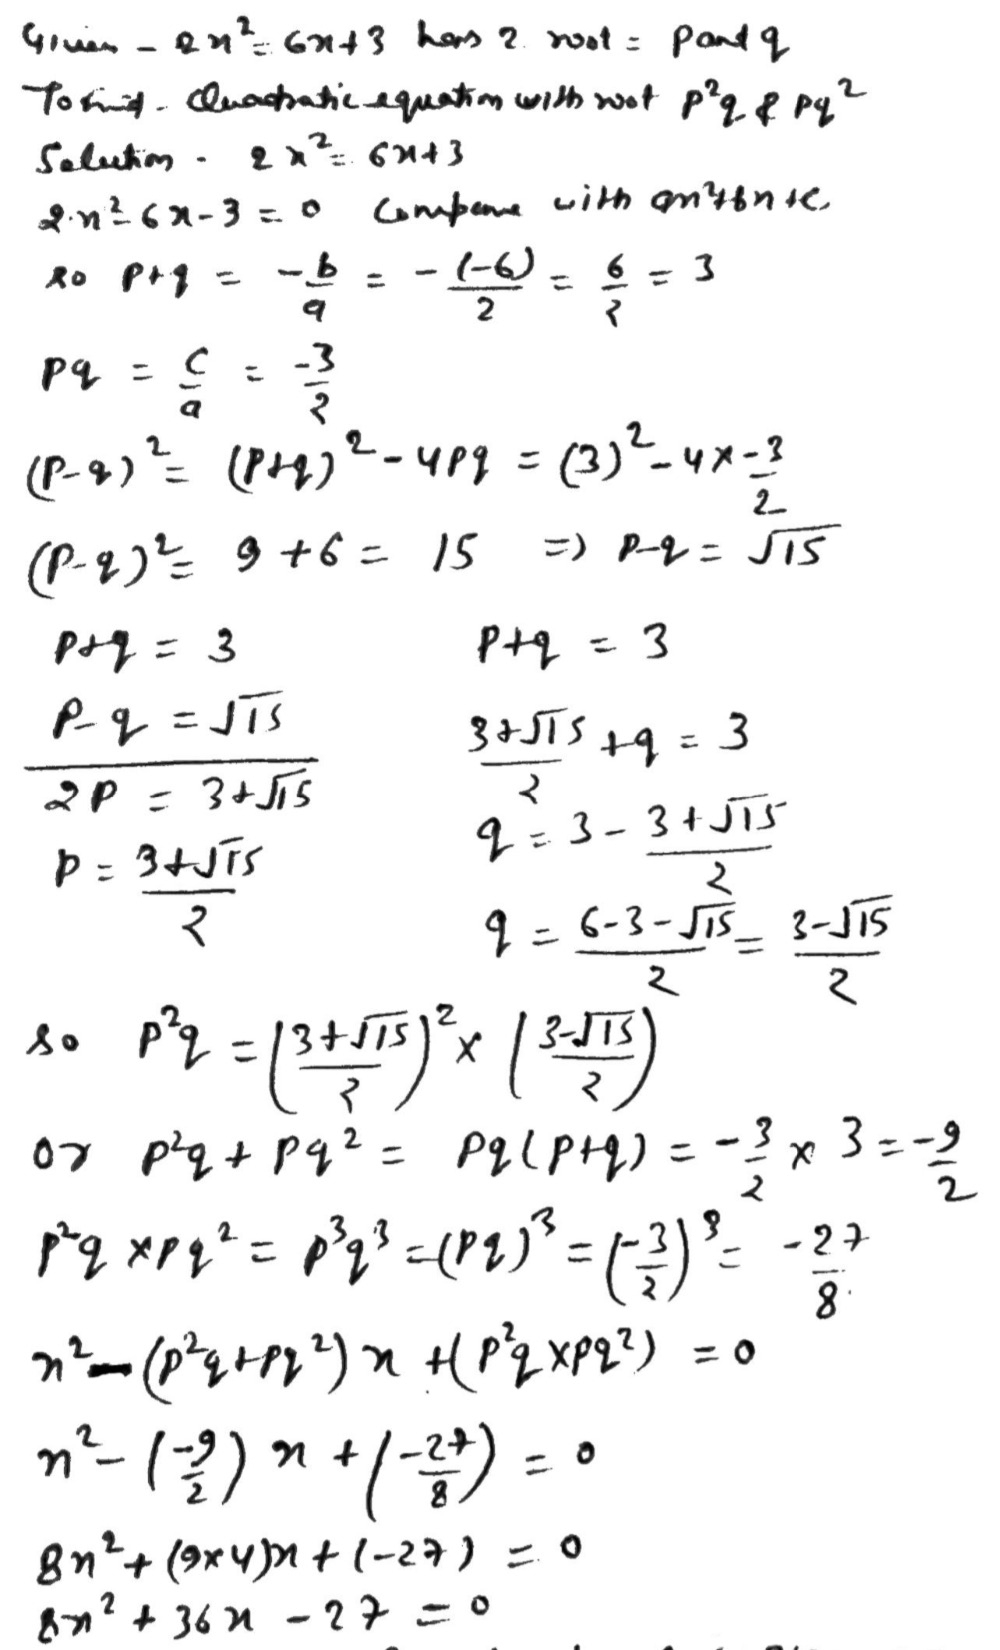 Given - 2x² = 6x+3 has 2 root = p and q
To find - Quadratic equation with root p²q & pq²
Solution - 2x² = 6x+3
2x² - 6x - 3 = 0 Compare with ax²+bx+c
so p+q = -b/a = -(-6)/2 = 6/2 = 3
pq = c/a = -3/2
(p-q)² = (p+q)² - 4pq = (3)² - 4x -3/2
(p-q)² = 9+6 = 15 => p-q = √15
p+q = 3 p+q = 3
p-q = √15 (3+√15)/2 + q = 3
2p = 3+√15 q = 3 - (3+√15)/2
p = (3+√15)/2 q = (6-3-√15)/2 = (3-√15)/2
so p²q = ((3+√15)/2)² x ((3-√15)/2)
or p²q + pq² = pq(p+q) = -3/2 x 3 = -9/2
p²q x pq² = p³q³ = (pq)³ = (-3/2)³ = -27/8
x² - (p²q+pq²)x + (p²q x pq²) = 0
x² - (-9/2)x + (-27/8) = 0
8x² + (9x4)x + (-27) = 0
8x² + 36x - 27 = 0